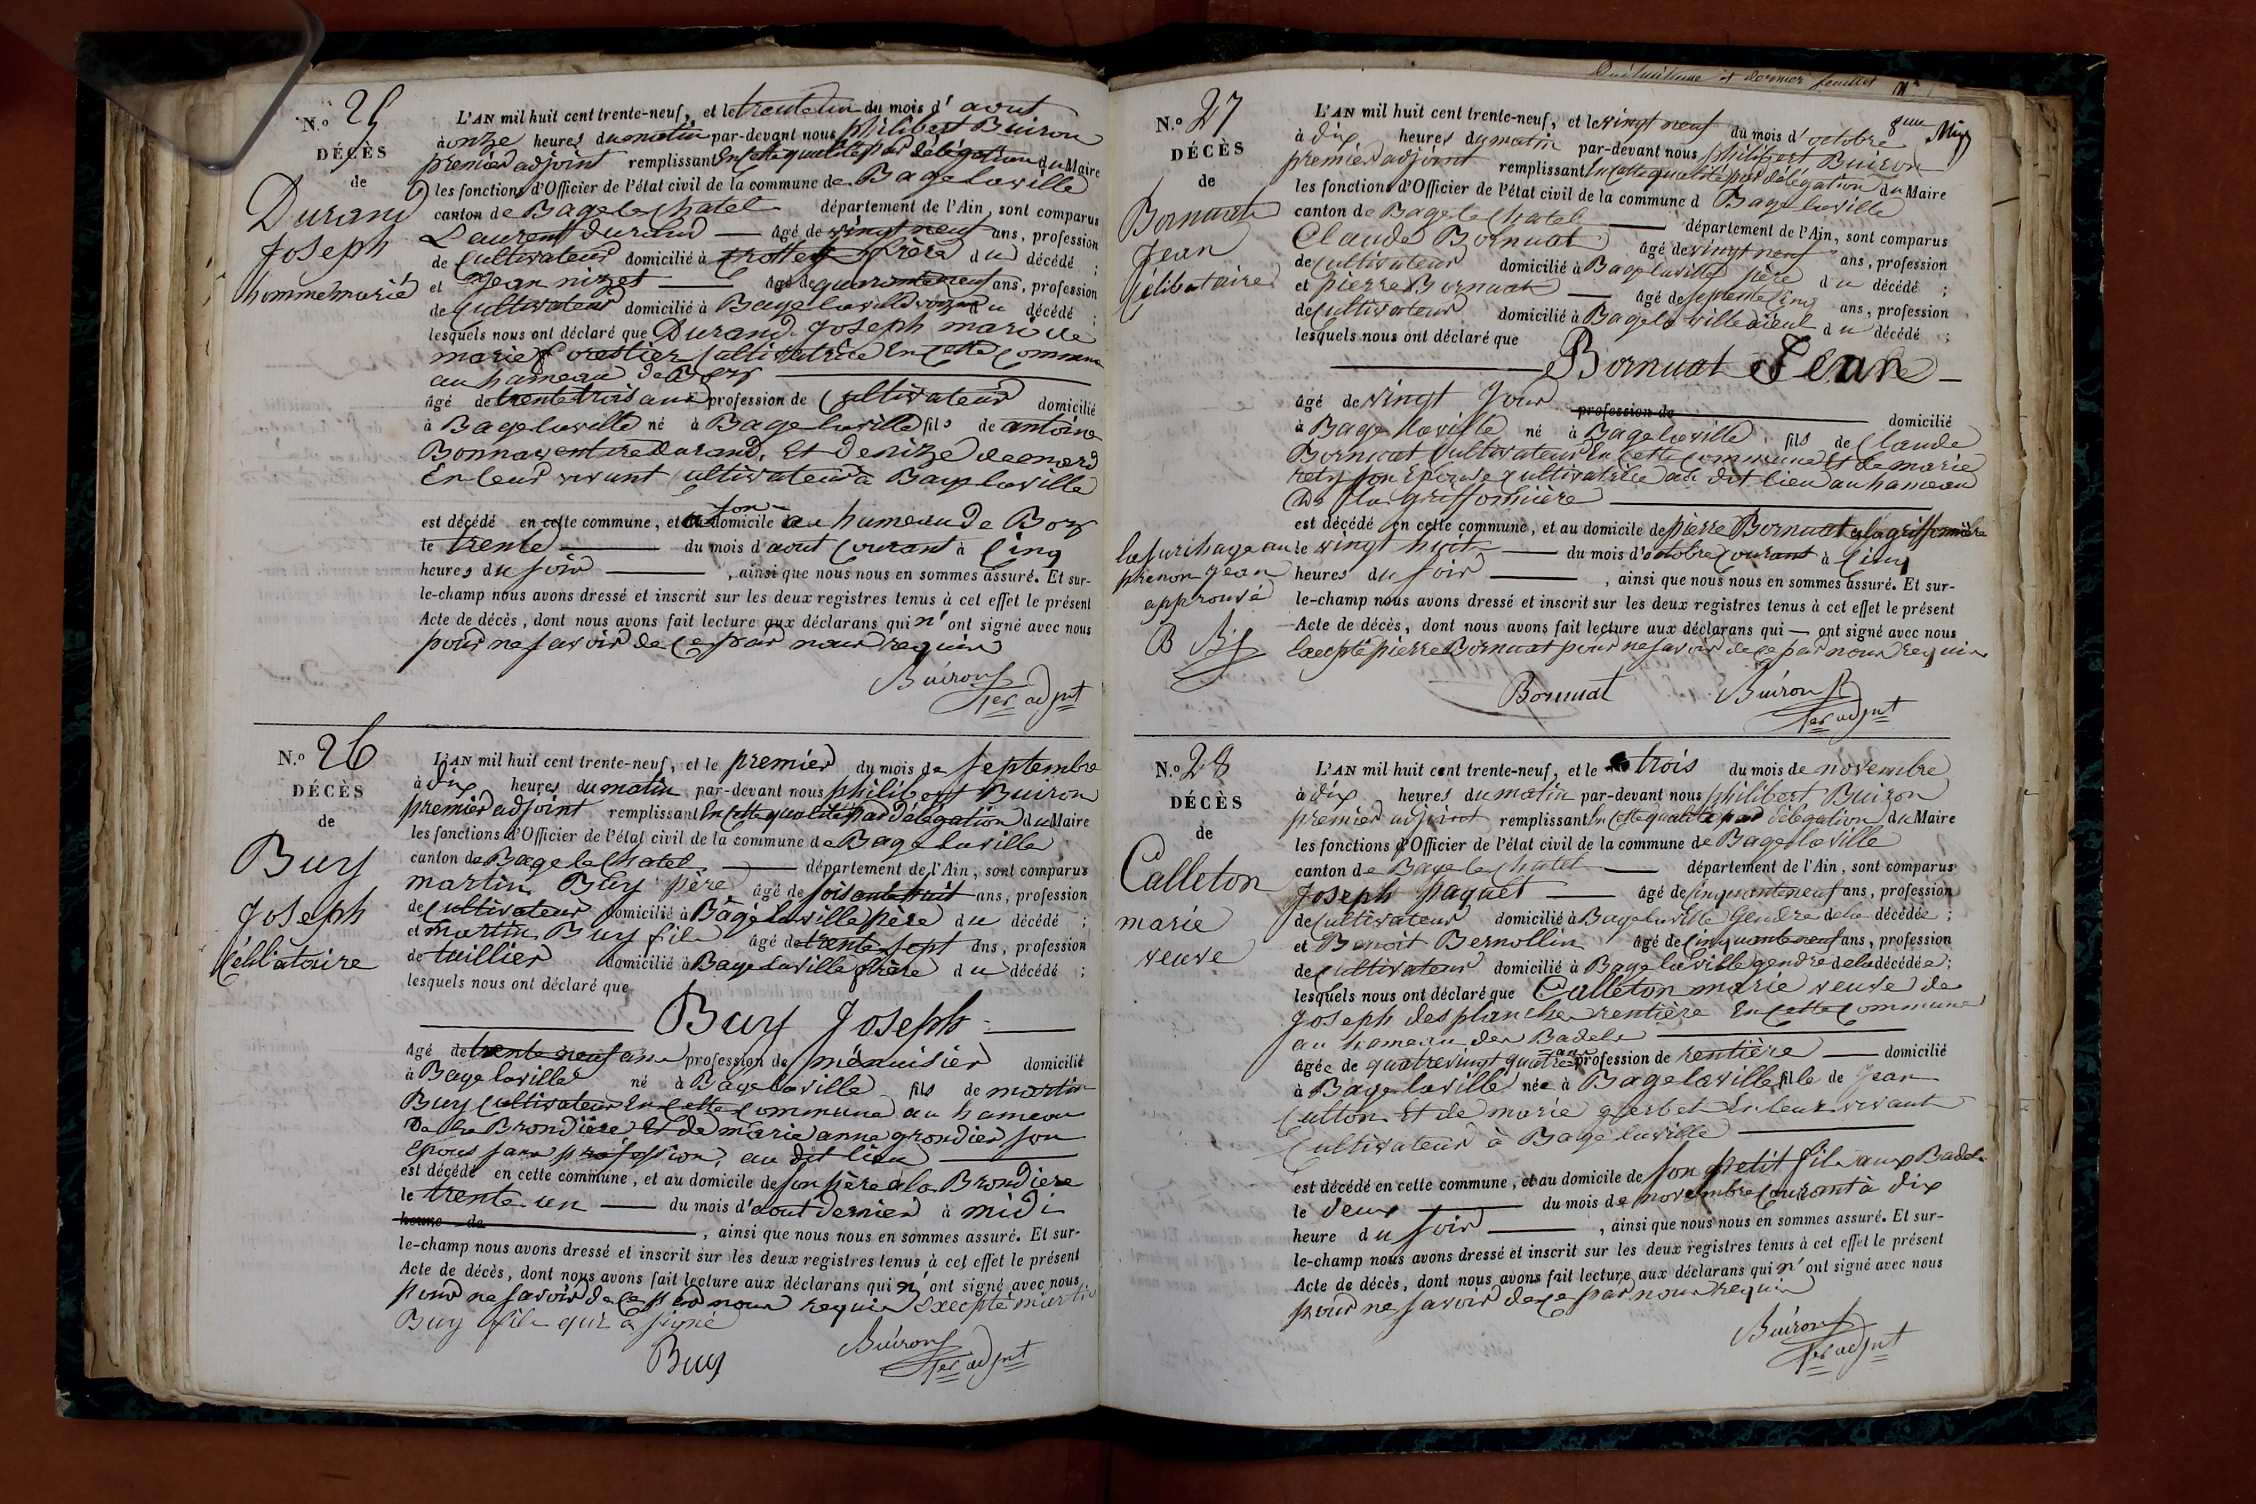 N.º 25
DÉCÈS
de
Durand
Joseph
homme marié
L'AN mil huit cent trente-neuf, et le trente un du mois d'aout
à onze heures du matin par-devant nous philibert Buiron
premier adjoint remplissant En cette qualité par délégation du Maire
les fonctions d'Officier de l'état civil de la commune de Bage laville
canton de Bage le Chatel département de l'Ain, sont comparus
Laurent durand — âgé de vingt neuf ans, profession
de Cultivateur domicilié à frère du décédé ;
et Jean nizet — âgé de quarante neuf ans, profession
de Cultivateur domicilié à Bage laville voisin du décédé ;
lesquels nous ont déclaré que Durand Joseph mari de
marie forestier Cultivatrice En Cette Commune
au hameau de Bozy
âgé de trente trois ans profession de Cultivateur domicilié
à Bage laville né à Bage laville fils de antoine
Bonnaventure durand, Et Denize
En leur vivant Cultivateur à Bage laville
est décédé en cette commune, et à son domicile au hameau de Bozy
le trente — du mois d'aout Courant à Cinq
heures du soir — , ainsi que nous nous en sommes assuré. Et sur-
le-champ nous avons dressé et inscrit sur les deux registres tenus à cet effet le présent
Acte de décès, dont nous avons fait lecture aux déclarans qui n'ont signé avec nous
pour ne savoir de Ce par nous requis
Buiron
1er adjnt
N.º 26
DÉCÈS
de
Buy
Joseph
Célibataire
L'AN mil huit cent trente-neuf, et le premier du mois de septembre
à dix heures du matin par-devant nous philibert Buiron
premier adjoint remplissant En cette qualité par délégation du Maire
les fonctions d'Officier de l'état civil de la commune de Bage laville
canton de Bage le Chatel — département de l'Ain, sont comparus
martin Buy père âgé de soixante huit ans, profession
de Cultivateur domicilié à Bâgé laville père du décédé ;
et martin Buy fils âgé de trente sept ans, profession
de taillier domicilié à Bage laville frère du décédé ;
lesquels nous ont déclaré que
— Buy Joseph —
âgé de trente neuf ans profession de ménuisier domicilié
à Bage laville né à Bage laville fils de martin
Buy Cultivateur En Cette Commune au hameau
De la Brondière Et de marie anne grondier son
Epouse sans profession, au dit lieu —
est décédé en cette commune, et au domicile de son père à la Brondiere
le trente un — du mois d'aout dernier à midi
heure de — , ainsi que nous nous en sommes assuré. Et sur-
le-champ nous avons dressé et inscrit sur les deux registres tenus à cet effet le présent
Acte de décès, dont nous avons fait lecture aux déclarans qui n'ont signé avec nous
pour ne savoir de Ce par nous requis Excepté martin
Buy fils qui a signé
Buy
Buiron
1er adjnt
huitième et dernier feuillet
8eme
N.º 27
DÉCÈS
de
Bornuat
Jean
Célibataire
L'AN mil huit cent trente-neuf, et le vingt neuf du mois d'octobre
à dix heures du matin par-devant nous philibert Buiron
premier adjoint remplissant En cette qualité par délégation du Maire
les fonctions d'Officier de l'état civil de la commune d Bage laville
canton de Bage le Chatel — département de l'Ain, sont comparus
Claude Bornuat âgé de vingt neuf ans, profession
de Cultivateur domicilié à Bage laville père du décédé ;
et pierre Bornuat — âgé de septente Cinq ans, profession
de Cultivateur domicilié à Bage la ville aieul du décédé ;
lesquels nous ont déclaré que
— Bornuat Jean —
âgé de vingt Jours profession de domicilié
à Bage laville né à Bage laville fils de Claude
Bornuat Cultivateur En Cette Commune Et de marie
rety son Epouse Cultivatrice au dit lieu au hameau
De la griffonnière —
est décédé en cette commune, et au domicile de pierre Bornuat à la griffonnière
le vingt huit — du mois d'octobre Courant à Cinq
heures du soir — , ainsi que nous nous en sommes assuré. Et sur-
le-champ nous avons dressé et inscrit sur les deux registres tenus à cet effet le présent
Acte de décès, dont nous avons fait lecture aux déclarans qui — ont signé avec nous
Excepté pierre Bornuat pour ne savoir de Ce par nous requis
la surchage au
prenom Jean
approuvé
B
Bornuat
Buiron
1er adjnt
N.º 28
DÉCÈS
de
Calleton
marie
veuve
L'AN mil huit cent trente-neuf, et le trois du mois de novembre
à dix heures du matin par-devant nous philibert Buiron
premier adjoint remplissant En cette qualité par délégation du Maire
les fonctions d'Officier de l'état civil de la commune de Bage laville
canton de Bage le Chatel — département de l'Ain, sont comparus
Joseph paquet — âgé de Cinquante neuf ans, profession
de Cultivateur domicilié à Bage laville Gendre de la décédée ;
et Benoit Bernollin âgé de Cinquante neuf ans, profession
de Cultivateur domicilié à Bage laville gendre de la décédée ;
lesquels nous ont déclaré que Calleton marie veuve de
Joseph desplanche rentière En Cette Commune
au hameau des Badels —
âgée de quatre vingt quatre ans profession de rentière — domicilié
à Bage laville née à Bage laville fille de Jean
Cutton Et de marie gerbet En leur vivant
Cultivateur à Bage laville —
est décédé en cette commune, et au domicile de son petit fils aux Badels
le deux — du mois de novembre Courant à dix
heure du soir — , ainsi que nous nous en sommes assuré. Et sur-
le-champ nous avons dressé et inscrit sur les deux registres tenus à cet effet le présent
Acte de décès, dont nous avons fait lecture aux déclarans qui n'ont signé avec nous
pour ne savoir de Ce par nous requis
Buiron
1er adjnt